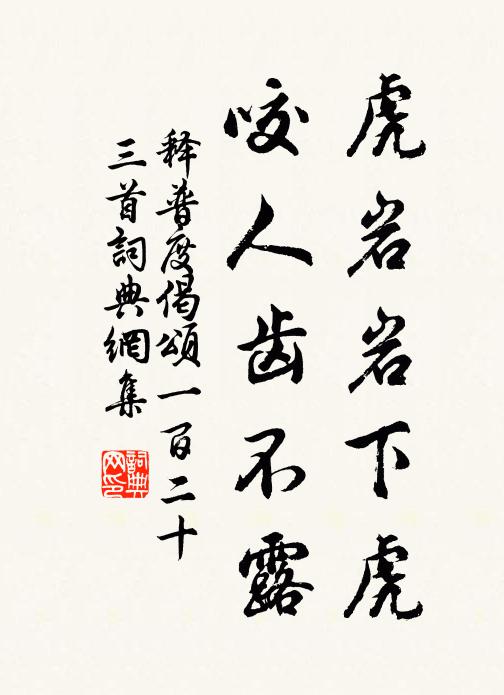 虎岩岩下虎
咬人齿不露
释普度偈頌一百二十
三首詞典網集
詞典网印